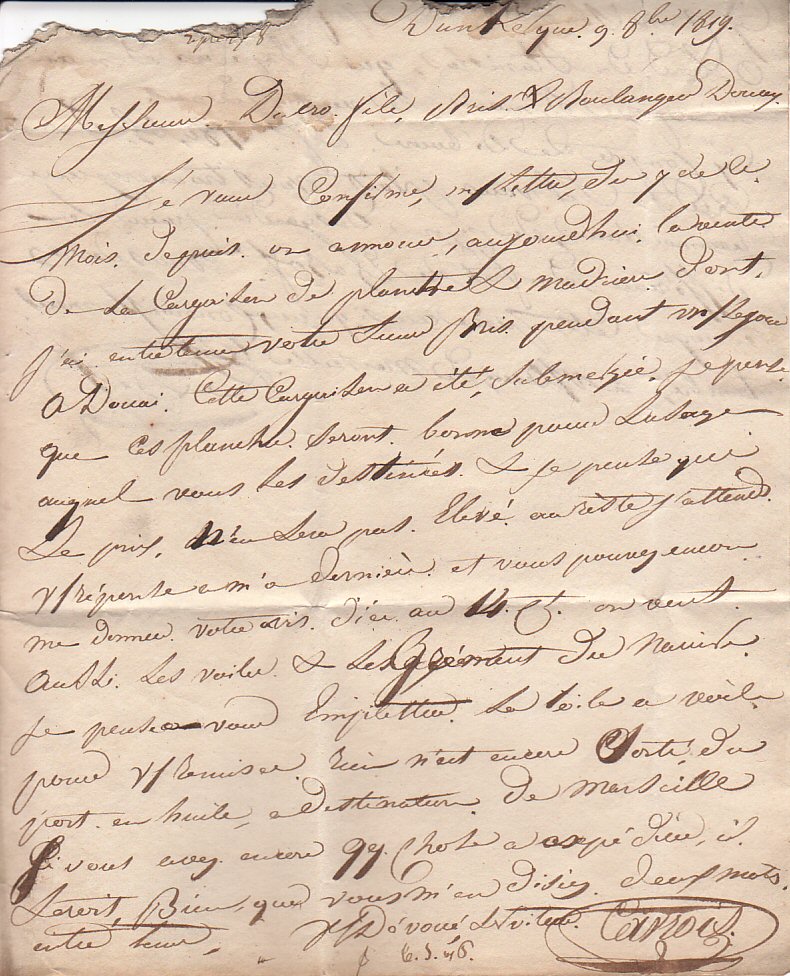 Dunkerque 9 8bre 1819.
Messieurs Ducro fils, Bris & Boulanger Douay.
Je vous Confirme, m/ Lettre, du 7 de ce
Mois. depuis. on annonce, aujourdhui. la vente
de La Carguison de planches & madriers dont,
j'ai entretenue votre Sieur Bris. pendant m/ Sejour
a Douai. Cette Carguison a été, submergée. je pense
que ces planches. seront. bonnes pour Lusage
auquel vous Les destinées. & je pense que
Le prix, n'en sera pas. Elevé. au reste j'attends
v/ réponse a m'a dernière. et vous pouvez encore
me donner. votre avis. d'ici au 14 Ct. on vent.
aussi. Les voiles. & Les agréments du Navire.
je pense vous Empletter. La toile a voile
pour v/ remises. Rien n'est encore Sorti, du
port. en huile, a destination. de Marseille
Si vous avez encore qq. Chose a expédier, il
Seroit, Bien, que vous m'en disiez. deux mots.
entre tems, v/ Dévoué Serviteur. Carrois.